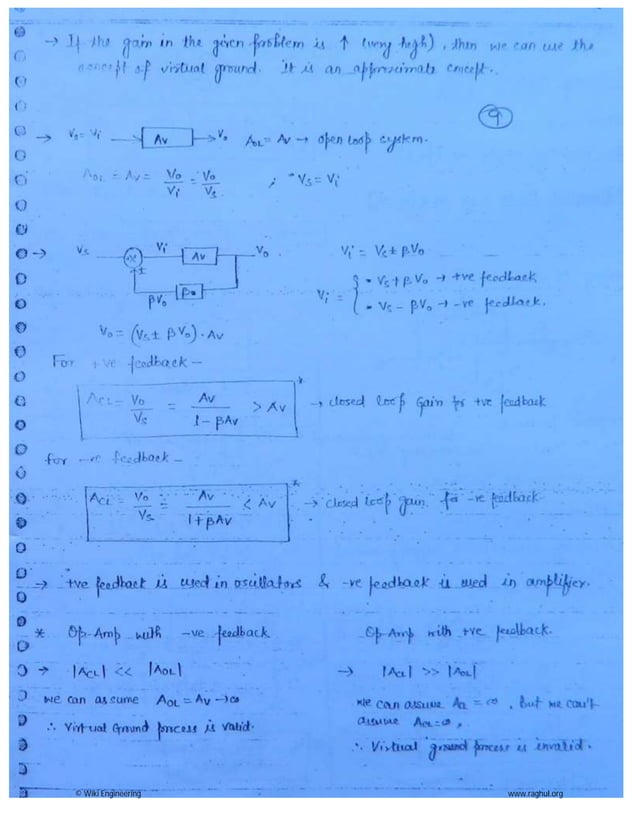 → If the gain in the given problem is ↑ (very high), then we can use the
concept of virtual ground. It is an approximate concept.
9
→ Vs = Vi → Av → Vo AOL = Av → open loop system.
AOL = Av = Vo/Vi = Vo/Vs ; ∵ Vs = Vi
→ Vs Vi Av Vo Vi = Vs ± βVo
±
βVo β
Vi = { • Vs + βVo → +ve feedback
• Vs - βVo → -ve feedback.
Vo = (Vs ± βVo) . Av
For +ve feedback -
ACL = Vo/Vs = Av/(1 - βAv) > Av * → closed loop gain for +ve feedback
for -ve feedback -
ACL = Vo/Vs = Av/(1 + βAv) < Av * → closed loop gain for -ve feedback
→ +ve feedback is used in oscillators & -ve feedback is used in amplifier.
* Op-Amp with -ve feedback
→ |ACL| << |AOL|
we can assume AOL = Av → ∞
∴ Virtual Ground process is valid.
Op-Amp with +ve feedback.
→ |ACL| >> |AOL|
we can assume = ∞, but we can't
assume = ∞,
∴ Virtual ground process is invalid.
© Wiki Engineering
www.raghul.org